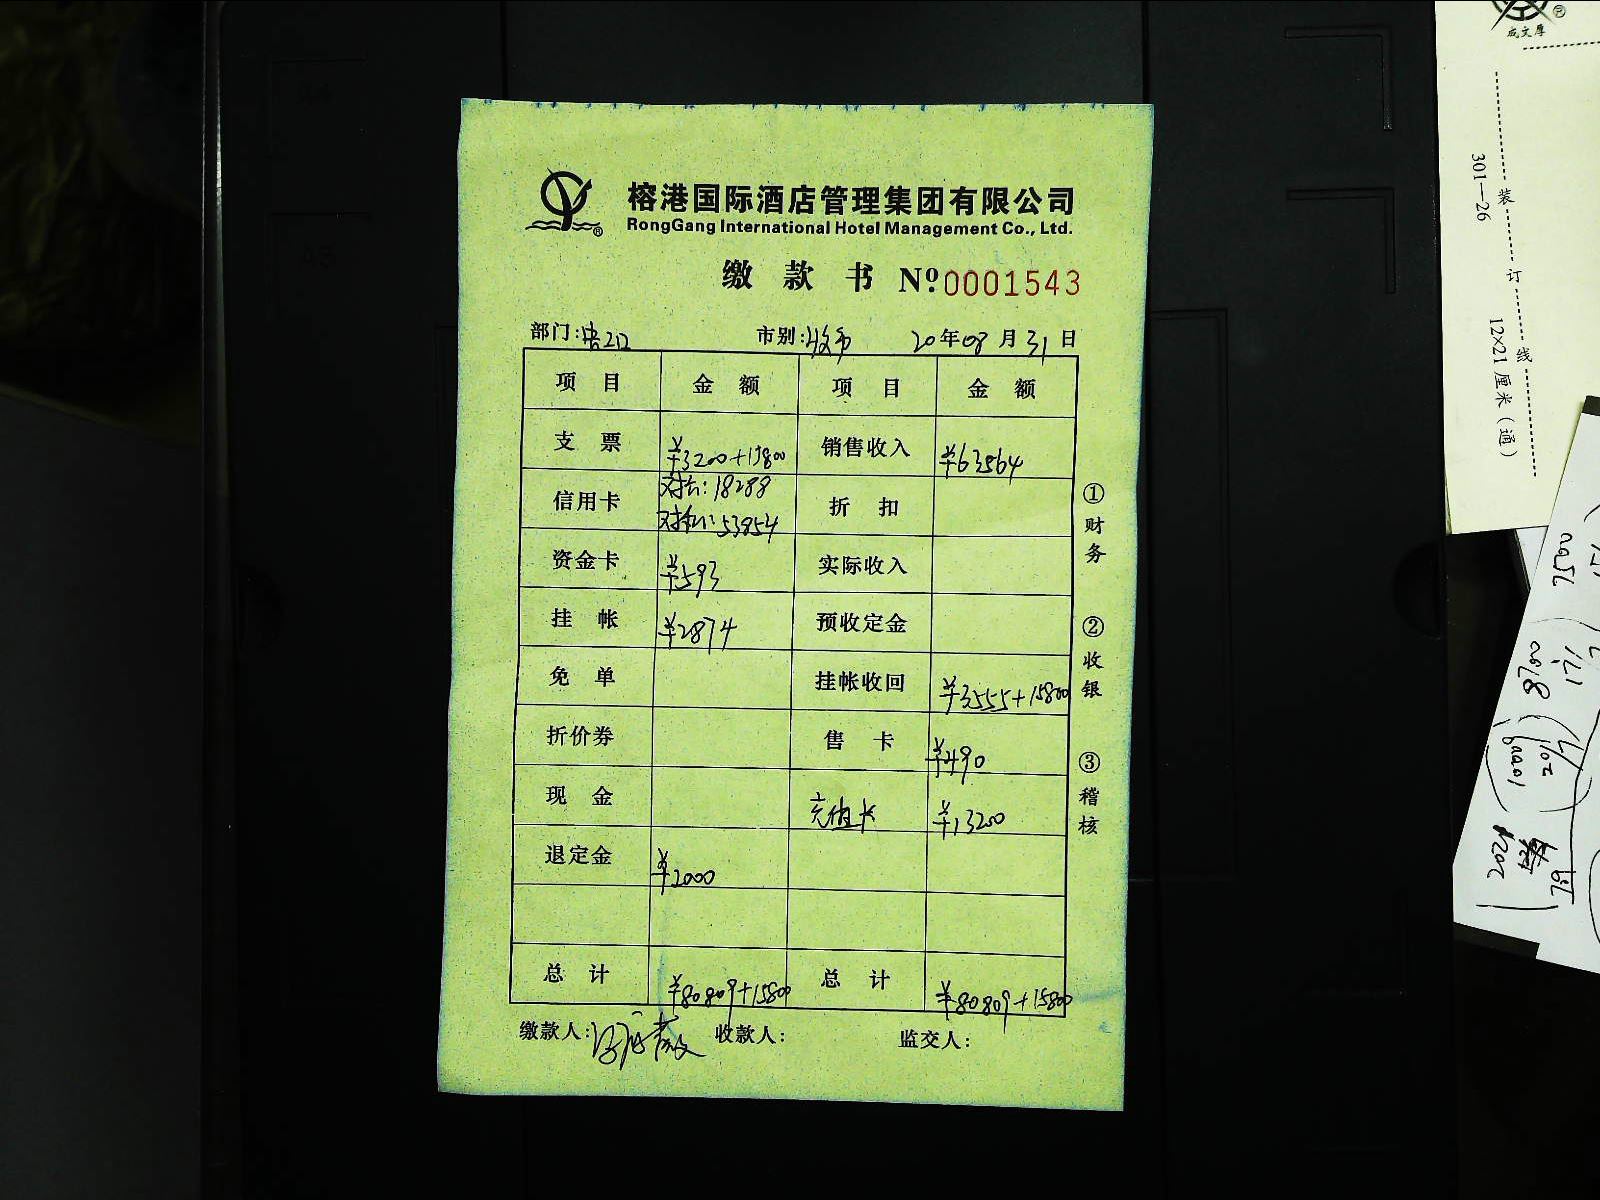 榕港国际酒店管理集团有限公司
RongGang International Hotel Management Co., Ltd.
缴款书 Nº 0001543
部门: 市别: 20年08月31日
项目 金额 项目 金额
支票 ¥3200+15800 销售收入 ¥63564
信用卡 18288 折扣
53854
资金卡 ¥593 实际收入
挂帐 ¥2874 预收定金
免单 挂帐收回 ¥3555+15800
折价券 售卡 ¥490
现金 充值卡 ¥13200
退定金 ¥2000
总计 ¥80809+15800 总计 ¥80809+15800
缴款人: 收款人: 监交人:
①财务 ②收银 ③稽核
®
成文厚
装订线
301—26
12×21厘米(通)